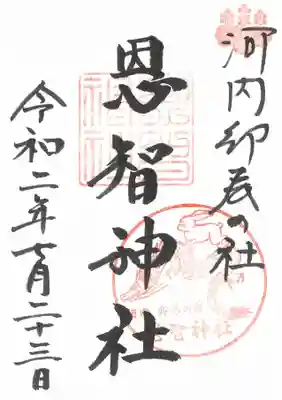 河内卯辰の社
恩智神社
令和二年七月二十三日
恩智神社